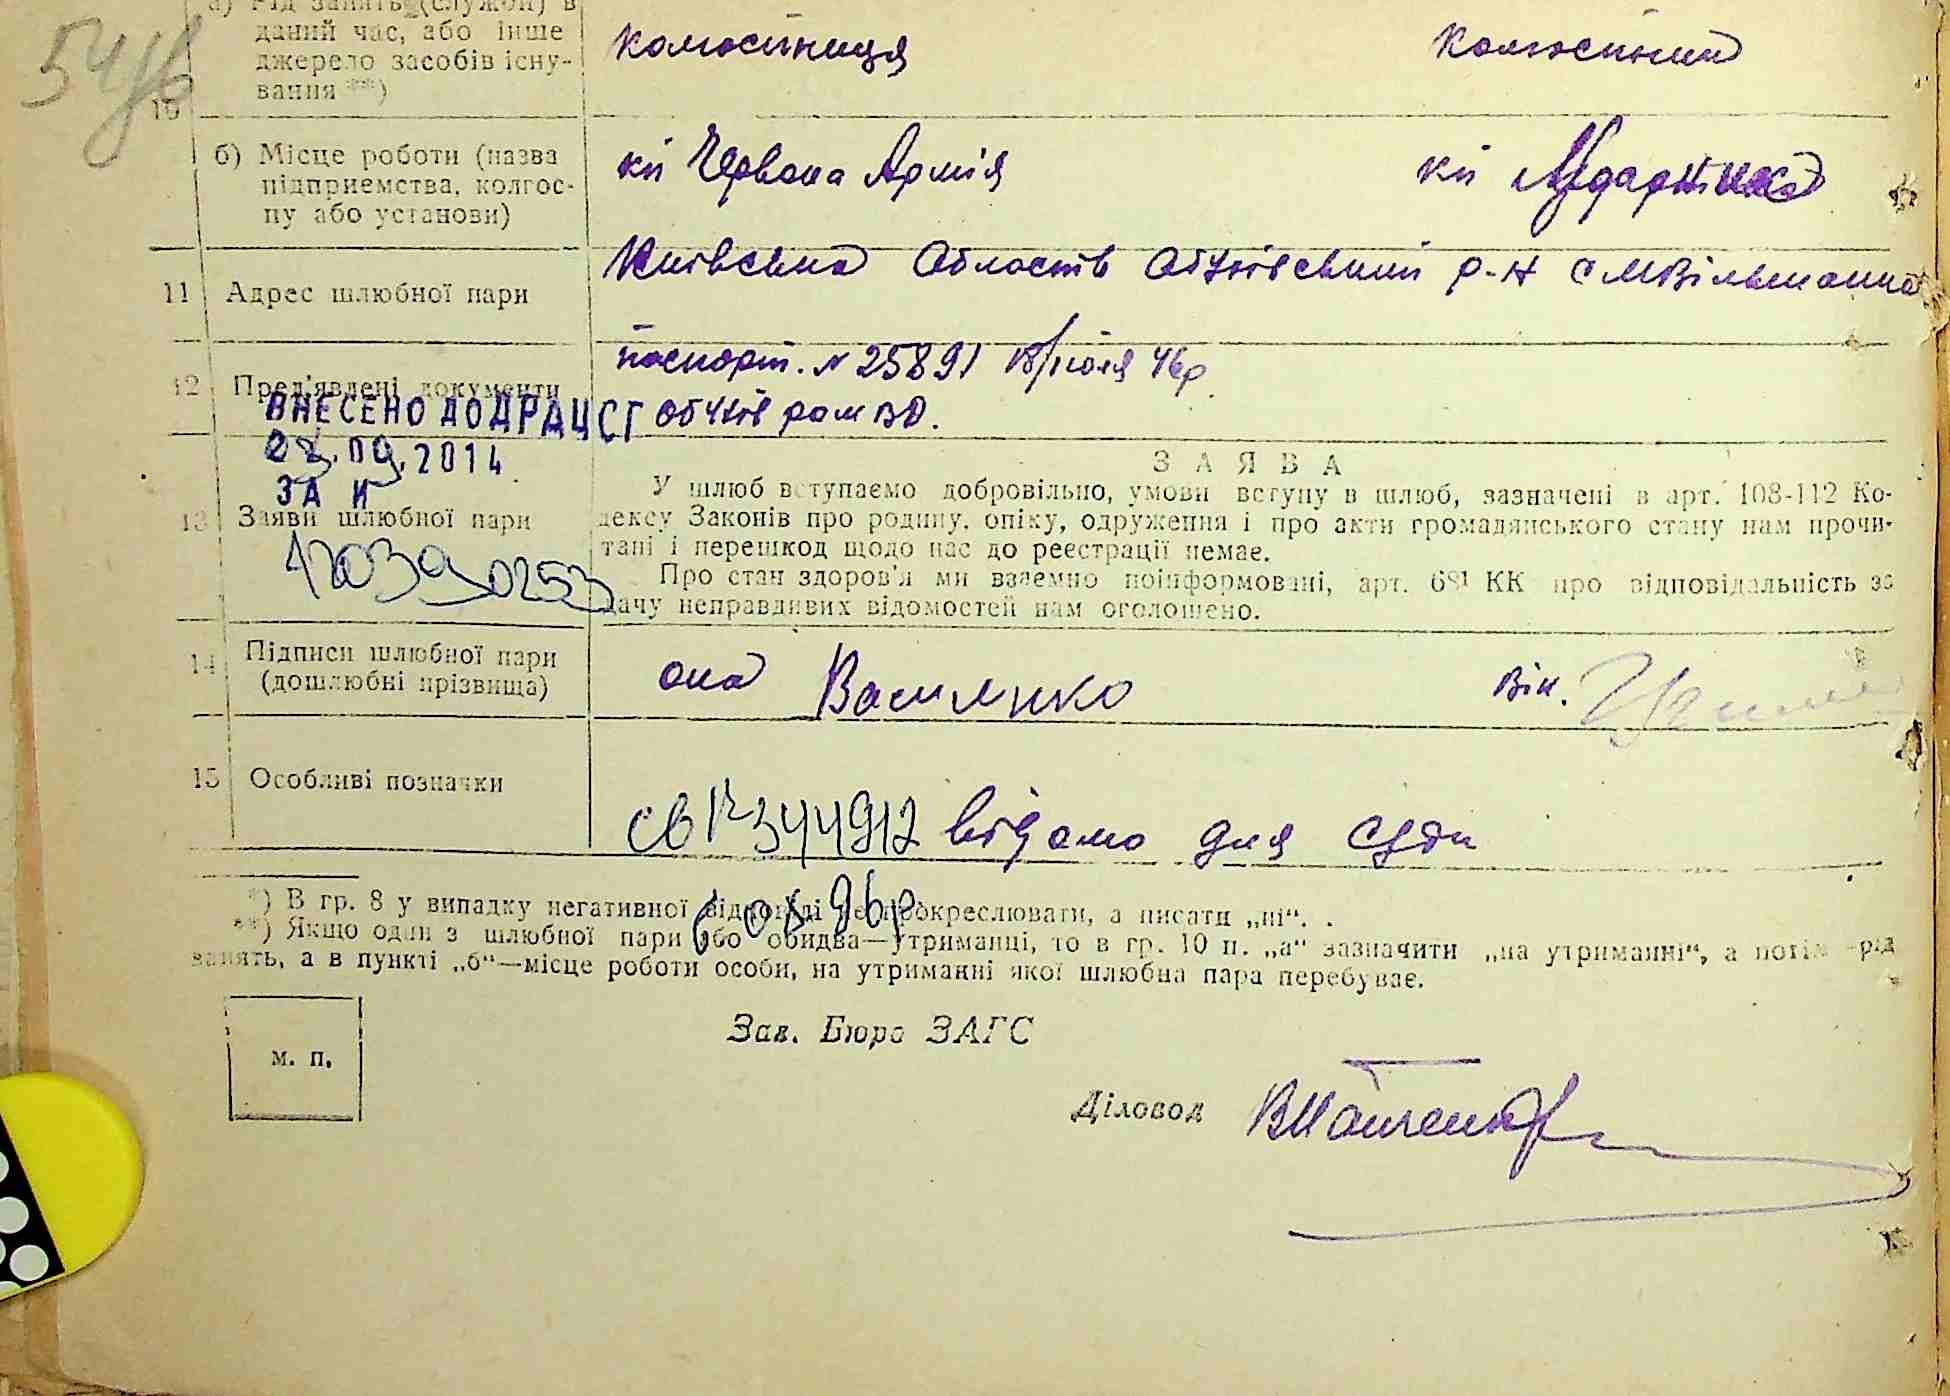 а) Рід занять (служби) в
даний час, або інше
джерело засобів існу-
вання **)
колгоспниця колгоспник
10
б) Місце роботи (назва
підприємства, колгос-
пу або установи)
кп Червона Армія кп
11 Адрес шлюбної пари
Київська Область Обухівський р-н
12 Пред'явлені документи
паспорт. N 25891 18/июля 46р
ВНЕСЕНО ДО ДРАЦСГ
Обухів
.09.2014
ЗА №
13 Заяви шлюбної пари
00253
ЗАЯВА
У шлюб вступаємо добровільно, умови вступу в шлюб, зазначені в арт. 108-112 Ко-
дексу Законів про родину, опіку, одруження і про акти громадянського стану нам прочи-
тані і перешкод щодо нас до реєстрації немає.
Про стан здоров'я ми взаємно поінформовані, арт. 68¹ КК про відповідальність за
дачу неправдивих відомостей нам оголошено.
14 Підписи шлюбної пари
(дошлюбні прізвища)
она Василенко Він.
15 Особливі позначки
344912 видано для
96р
*) В гр. 8 у випадку негативної відповіді не прокреслювати, а писати „ні“.
**) Якщо один з шлюбної пари або обидва—утриманці, то в гр. 10 п. „а“ зазначити „на утриманні“, а потім—рід
занять, а в пункті „б“—місце роботи особи, на утриманні якої шлюбна пара перебуває.
м. п.
Зав. Бюро ЗАГС
Діловод